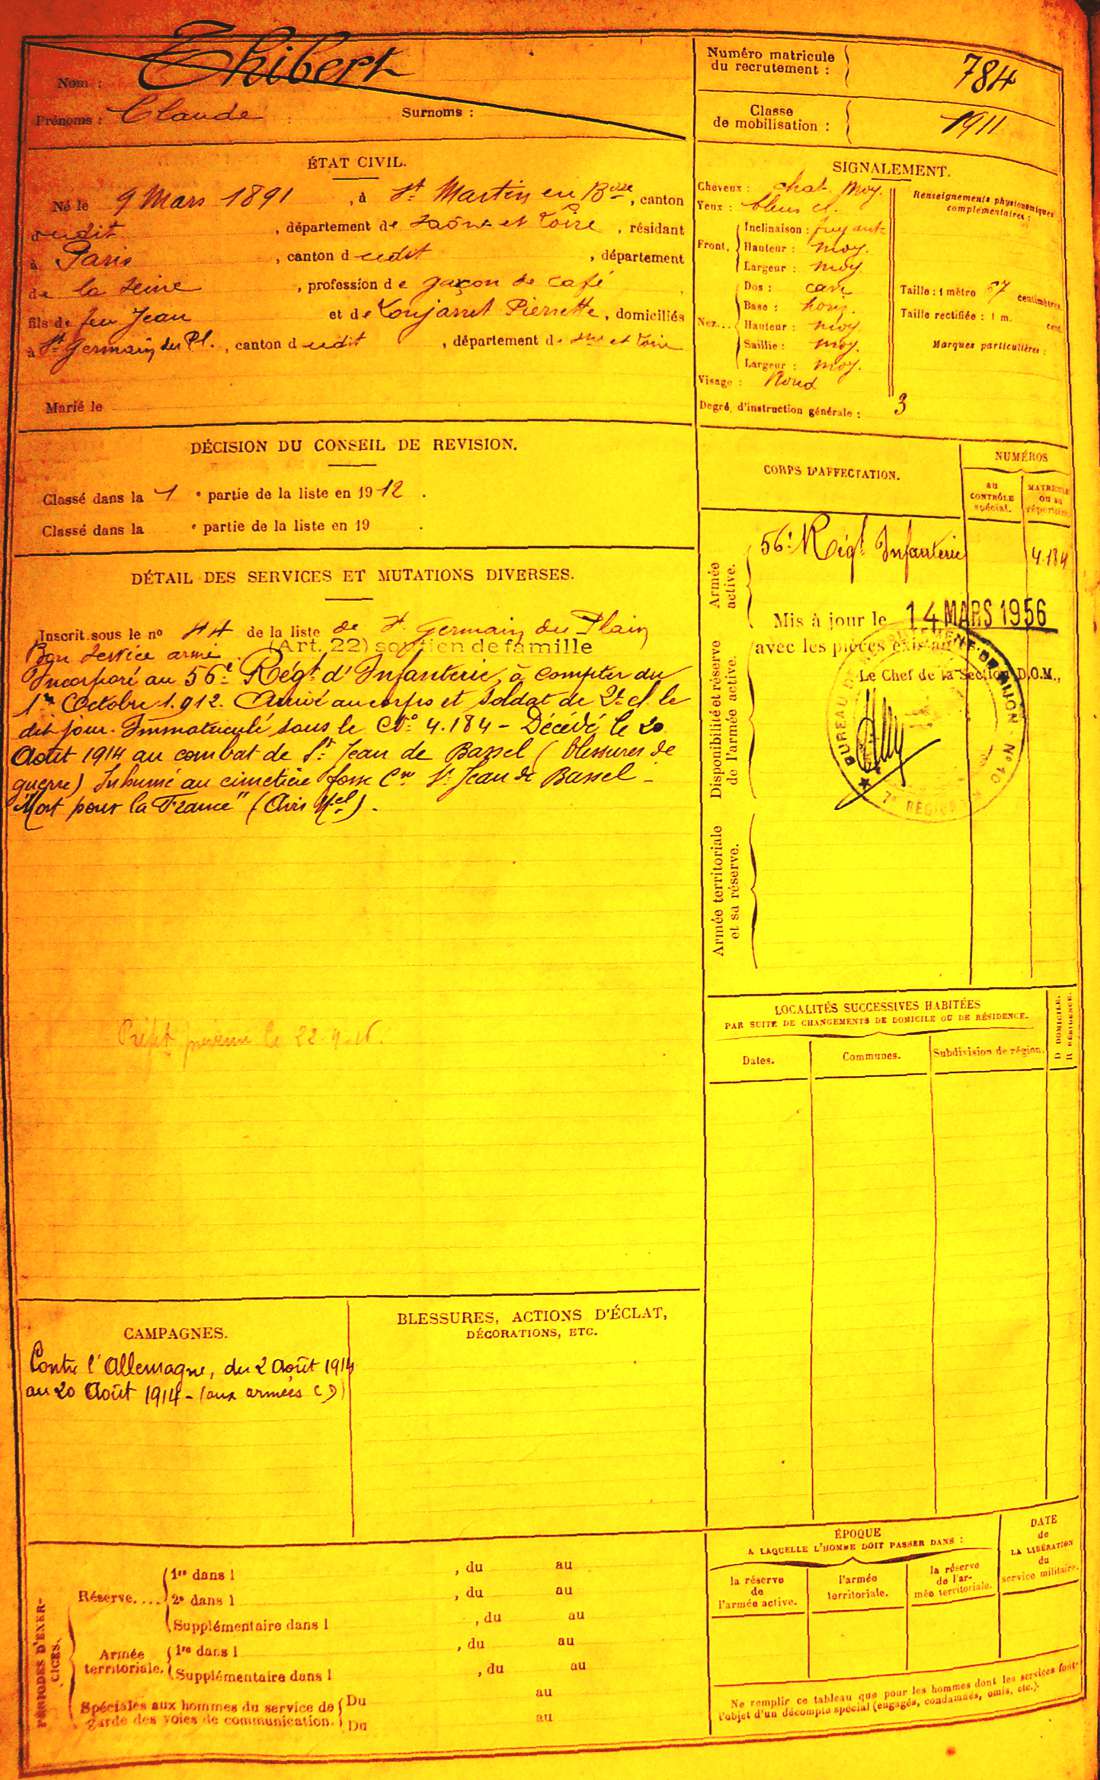 Nom : Thibert
Prénoms : Claude Surnoms :
Numéro matricule
du recrutement : 784
Classe
de mobilisation : 1911
ÉTAT CIVIL.
Né le 9 Mars 1891, à St Martin en Bsse, canton
dudit, département de Saône et Loire, résidant
à Paris, canton dudit, département
de la Seine, profession de garçon de café
fils de feu Jean et de Pierrette, domiciliés
à St Germain du Pl., canton dudit, département de Sne et Loire
Marié le
SIGNALEMENT.
Cheveux : chat. moy.
Yeux : bleus cl.
Front. Inclinaison : fuyant
Hauteur : moy.
Largeur : moy
Nez... Dos : cave
Base : horiz.
Hauteur : moy.
Saillie : moy.
Largeur : moy.
Visage : Rond
Renseignements physionomiques
complémentaires :
Taille : 1 mètre 67 centimètres.
Taille rectifiée : 1 m. cent.
Marques particulières :
Degré d'instruction générale : 3
DÉCISION DU CONSEIL DE REVISION.
Classé dans la 1 e partie de la liste en 1912.
Classé dans la e partie de la liste en 19 .
DÉTAIL DES SERVICES ET MUTATIONS DIVERSES.
Inscrit sous le no 44 de la liste de St Germain du Plain
Bon service armé (Art. 22) soutien de famille
Incorporé au 56e Régt d'Infanterie, à compter du
1er Octobre 1912. Arrivé au corps et soldat de 2e cl. le
dit jour. Immatriculé sous le No 4.184 - Décédé le 20
Août 1914 au combat de St Jean de Bassel (blessures de
guerre) Inhumé au cimetière fosse Cne St Jean de Bassel -
"Mort pour la France" (Avis Mel).
le 22-9-16.
CORPS D'AFFECTATION.
NUMÉROS
au
CONTRÔLE
spécial.
MATRICULE
ou au
répertoire.
Armée
active.
56e Régt Infanterie 4.184
Mis à jour le 14 MARS 1956
avec les pièces
Le Chef de la Section D.O.M.,
BUREAU DE RECRUTEMENT DE DIJON - No 10
7e RÉGION
Disponibilité et réserve
de l'armée active.
Armée territoriale
et sa réserve.
LOCALITÉS SUCCESSIVES HABITÉES
PAR SUITE DE CHANGEMENTS DE DOMICILE OU DE RÉSIDENCE.
Dates. Communes. Subdivision de région.
D DOMICILE.
R RÉSIDENCE.
CAMPAGNES.
Contre l'Allemagne, du 2 Août 1914
au 20 Août 1914 - (aux armées
BLESSURES, ACTIONS D'ÉCLAT,
DÉCORATIONS, ETC.
PÉRIODES D'EXER-
CICES.
Réserve.... 1re dans l , du au
2e dans l , du au
Supplémentaire dans l , du au
Armée
territoriale. 1re dans l , du au
Supplémentaire dans l , du au
Spéciales aux hommes du service de
garde des voies de communication. Du au
Du au
ÉPOQUE
A LAQUELLE L'HOMME DOIT PASSER DANS :
la réserve
de
l'armée active.
l'armée
territoriale.
la réserve
de l'ar-
mée territoriale.
DATE
de
LA LIBÉRATION
du
service militaire.
Ne remplir ce tableau que pour les hommes dont les services font
l'objet d'un décompte spécial (engagés, condamnés, omis, etc.).